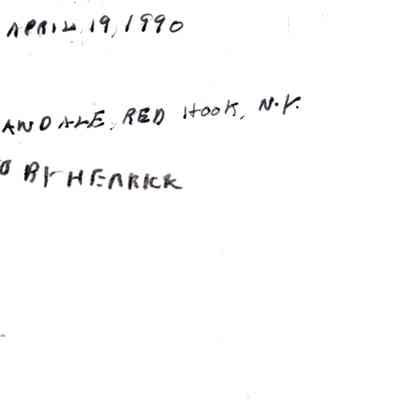 APRIL 19, 1990
ANDALE, RED HOOK, N.Y.
BY HERRICK